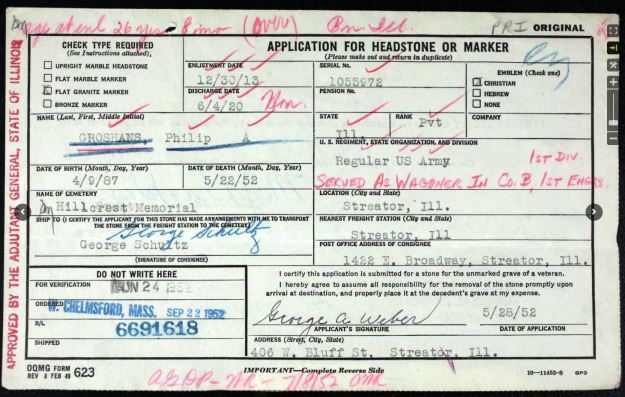 age at enl 26 yrs 8 mo (over) Bn Ill. PRI ORIGINAL
CHECK TYPE REQUIRED
(See Instructions attached).
UPRIGHT MARBLE HEADSTONE
FLAT MARBLE MARKER
FLAT GRANITE MARKER
BRONZE MARKER
APPLICATION FOR HEADSTONE OR MARKER
(Please make out and return in duplicate)
ENLISTMENT DATE
12/30/13
DISCHARGE DATE
6/4/20 Hon.
SERIAL NO.
1055972
PENSION NO.
EMBLEM (Check one)
CHRISTIAN
HEBREW
NONE
NAME (Last, First, Middle Initial)
GROSHANS, Philip A
STATE
Ill.
RANK
Pvt
COMPANY
U. S. REGIMENT, STATE ORGANIZATION, AND DIVISION
Regular US Army 1ST DIV.
SERVED AS WAGONER IN CO. B, 1ST ENGRS
DATE OF BIRTH (Month, Day, Year)
4/9/87
DATE OF DEATH (Month, Day, Year)
5/22/52
NAME OF CEMETERY
Hillcrest Memorial
LOCATION (City and State)
Streator, Ill.
SHIP TO (I CERTIFY THE APPLICANT FOR THIS STONE HAS MADE ARRANGEMENTS WITH ME TO TRANSPORT
THE STONE FROM THE FREIGHT STATION TO THE CEMETERY)
George Schultz
George Schultz
(SIGNATURE OF CONSIGNEE)
NEAREST FREIGHT STATION (City and State)
Streator, Ill
POST OFFICE ADDRESS OF CONSIGNEE
1422 E. Broadway, Streator, Ill.
DO NOT WRITE HERE
FOR VERIFICATION
JUN 24 1952
ORDERED
W. CHELMSFORD, MASS. SEP 22 1952
B/L
6691618
SHIPPED
I certify this application is submitted for a stone for the unmarked grave of a veteran.
I hereby agree to assume all responsibility for the removal of the stone promptly upon
arrival at destination, and properly place it at the decedent's grave at my expense.
George A. Weber 5/28/52
APPLICANT'S SIGNATURE DATE
ADDRESS (Street, City, State)
406 W. Bluff St. Streator, Ill.
OQMG FORM
REV 8 FEB 49 623
IMPORTANT—Complete Reverse Side
16—11453-5 GPO
APPROVED BY THE ADJUTANT GENERAL, STATE OF ILLINOIS